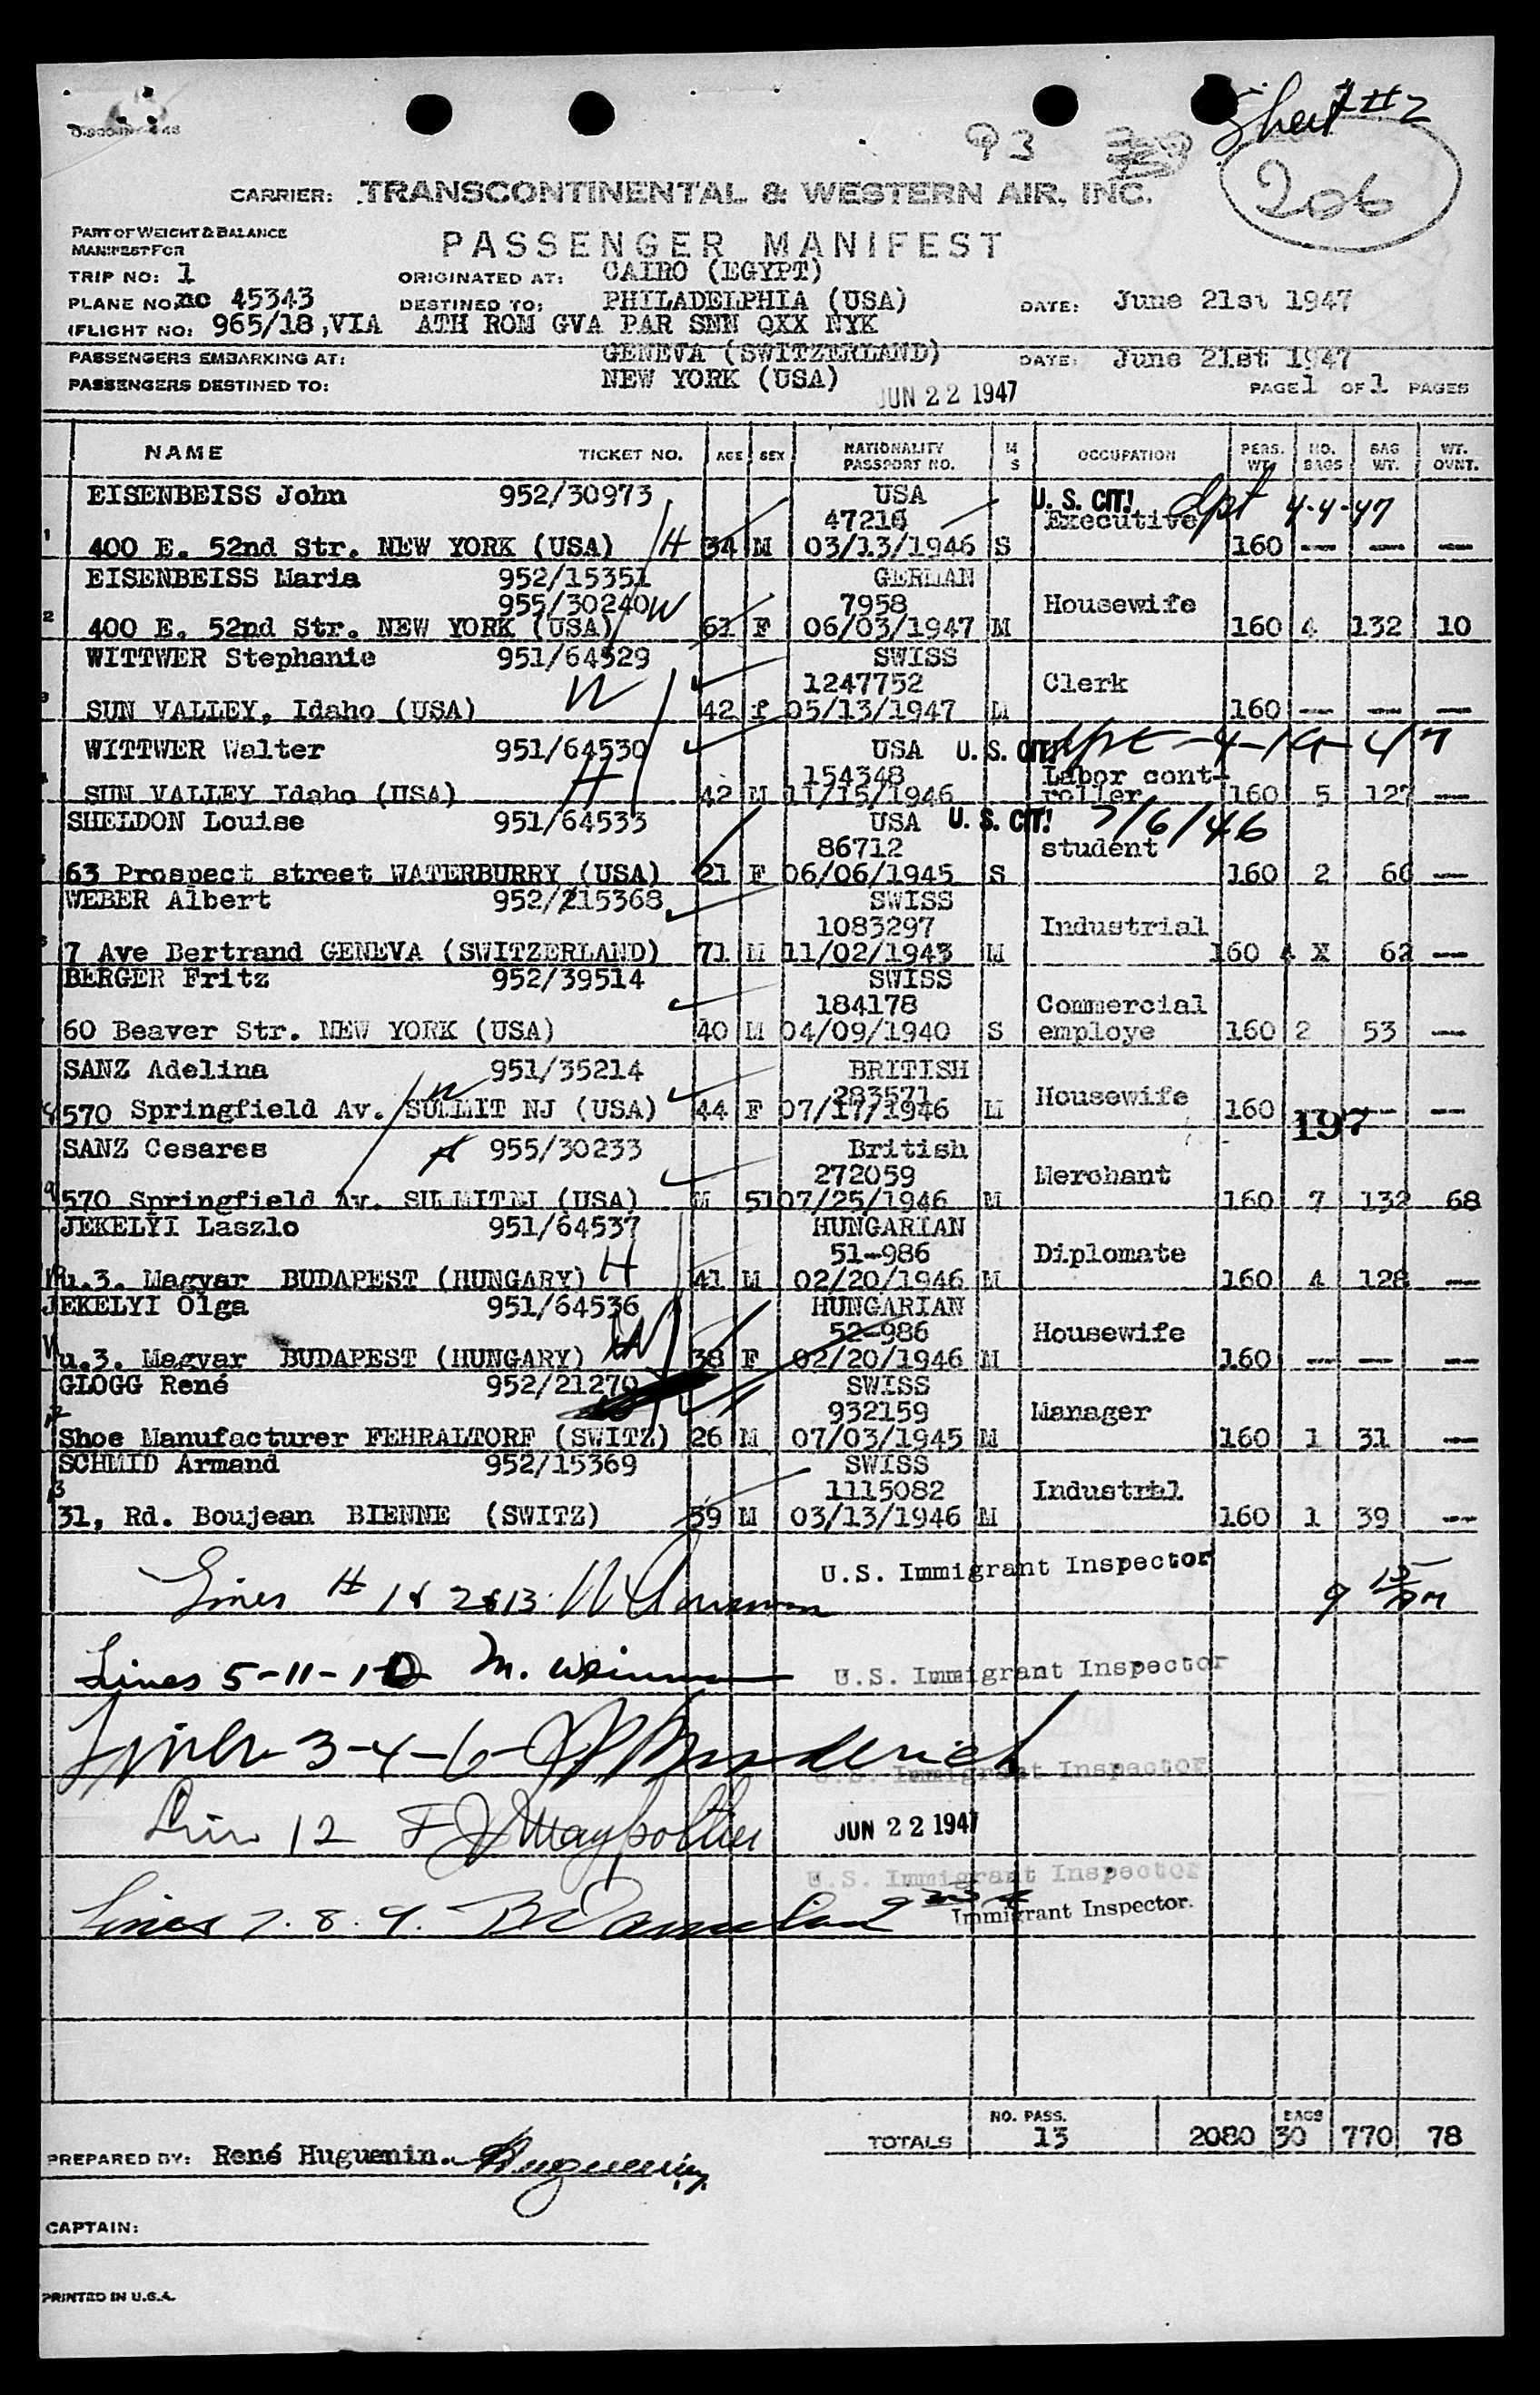 Sheet #2
93
206
CARRIER: TRANSCONTINENTAL & WESTERN AIR, INC.
PART OF WEIGHT & BALANCE
MANIFEST FOR
PASSENGER MANIFEST
TRIP NO: 1 ORIGINATED AT: CAIRO (EGYPT)
PLANE NO: nc 45343 DESTINED TO: PHILADELPHIA (USA) DATE: June 21st 1947
(FLIGHT NO: 965/18, VIA ATH ROM GVA PAR SNN QXX NYK
PASSENGERS EMBARKING AT: GENEVA (SWITZERLAND) DATE: June 21st 1947
PASSENGERS DESTINED TO: NEW YORK (USA) JUN 22 1947 PAGE 1 OF 1 PAGES
NAME TICKET NO. AGE SEX NATIONALITY PASSPORT NO. M S OCCUPATION PERS. WT. NO. BAGS BAG WT. WT. OVNT.
EISENBEISS John 952/30973 USA U. S. CIT! dpt 4-4-47
47216 Executive
1 400 E. 52nd Str. NEW YORK (USA) H 34 M 03/13/1946 S 160 -- -- --
EISENBEISS Maria 952/15351 GERMAN
955/30240 W 7958 Housewife
2 400 E. 52nd Str. NEW YORK (USA) 61 F 06/03/1947 M 160 4 132 10
WITTWER Stephanie 951/64529 SWISS
W 1247752 Clerk
3 SUN VALLEY, Idaho (USA) 42 f 05/13/1947 M 160 -- -- --
WITTWER Walter 951/64530 USA U. S. CIT! dpt-4-19-47
H 154348 Labor cont-
SUN VALLEY Idaho (USA) 42 M 11/15/1946 roller 160 5 127 --
SHELDON Louise 951/64533 USA U. S. CIT! 7/6/46
86712 student
63 Prospect street WATERBURRY (USA) 21 F 06/06/1945 S 160 2 66 --
WEBER Albert 952/215368 SWISS
1083297 Industrial
7 Ave Bertrand GENEVA (SWITZERLAND) 71 M 11/02/1943 M 160 4 X 62 --
BERGER Fritz 952/39514 SWISS
184178 Commercial
60 Beaver Str. NEW YORK (USA) 40 M 04/09/1940 S employe 160 2 53 --
SANZ Adelina 951/35214 BRITISH
W 283571 Housewife
8 570 Springfield Av. SUMMIT NJ (USA) 44 F 07/17/1946 M 160 -- --
197
SANZ Cesares H 955/30233 British
272059 Merchant
9 570 Springfield Av. SUMMITNJ (USA) M 51 07/25/1946 M 160 7 132 68
JEKELYI Laszlo 951/64537 HUNGARIAN
51-986 Diplomate
10 u.3. Magyar BUDAPEST (HUNGARY) H 41 M 02/20/1946 M 160 4 128 --
JEKELYI Olga 951/64536 HUNGARIAN
52-986 Housewife
11 u.3. Magyar BUDAPEST (HUNGARY) W 38 F 02/20/1946 M 160 -- -- --
GLOGG René 952/21270 SWISS
932159 Manager
12 Shoe Manufacturer FEHRALTORF (SWITZ) 26 M 07/03/1945 M 160 1 31 --
SCHMID Armand 952/15369 SWISS
1115082 Industrial
13 31, Rd. Boujean BIENNE (SWITZ) 59 M 03/13/1946 M 160 1 39 --
Lines # 1 & 2 & 13 U.S. Immigrant Inspector
Lines 5-11-10 M. U.S. Immigrant Inspector
3-4-6- U.S. Immigrant Inspector
Line 12 JUN 22 1947
U.S. Immigrant Inspector
Lines 7. 8. 9. Immigrant Inspector.
NO. PASS. BAGS
TOTALS 13 2080 30 770 78
PREPARED BY: René Huguenin. Huguenin
CAPTAIN:
PRINTED IN U.S.A.